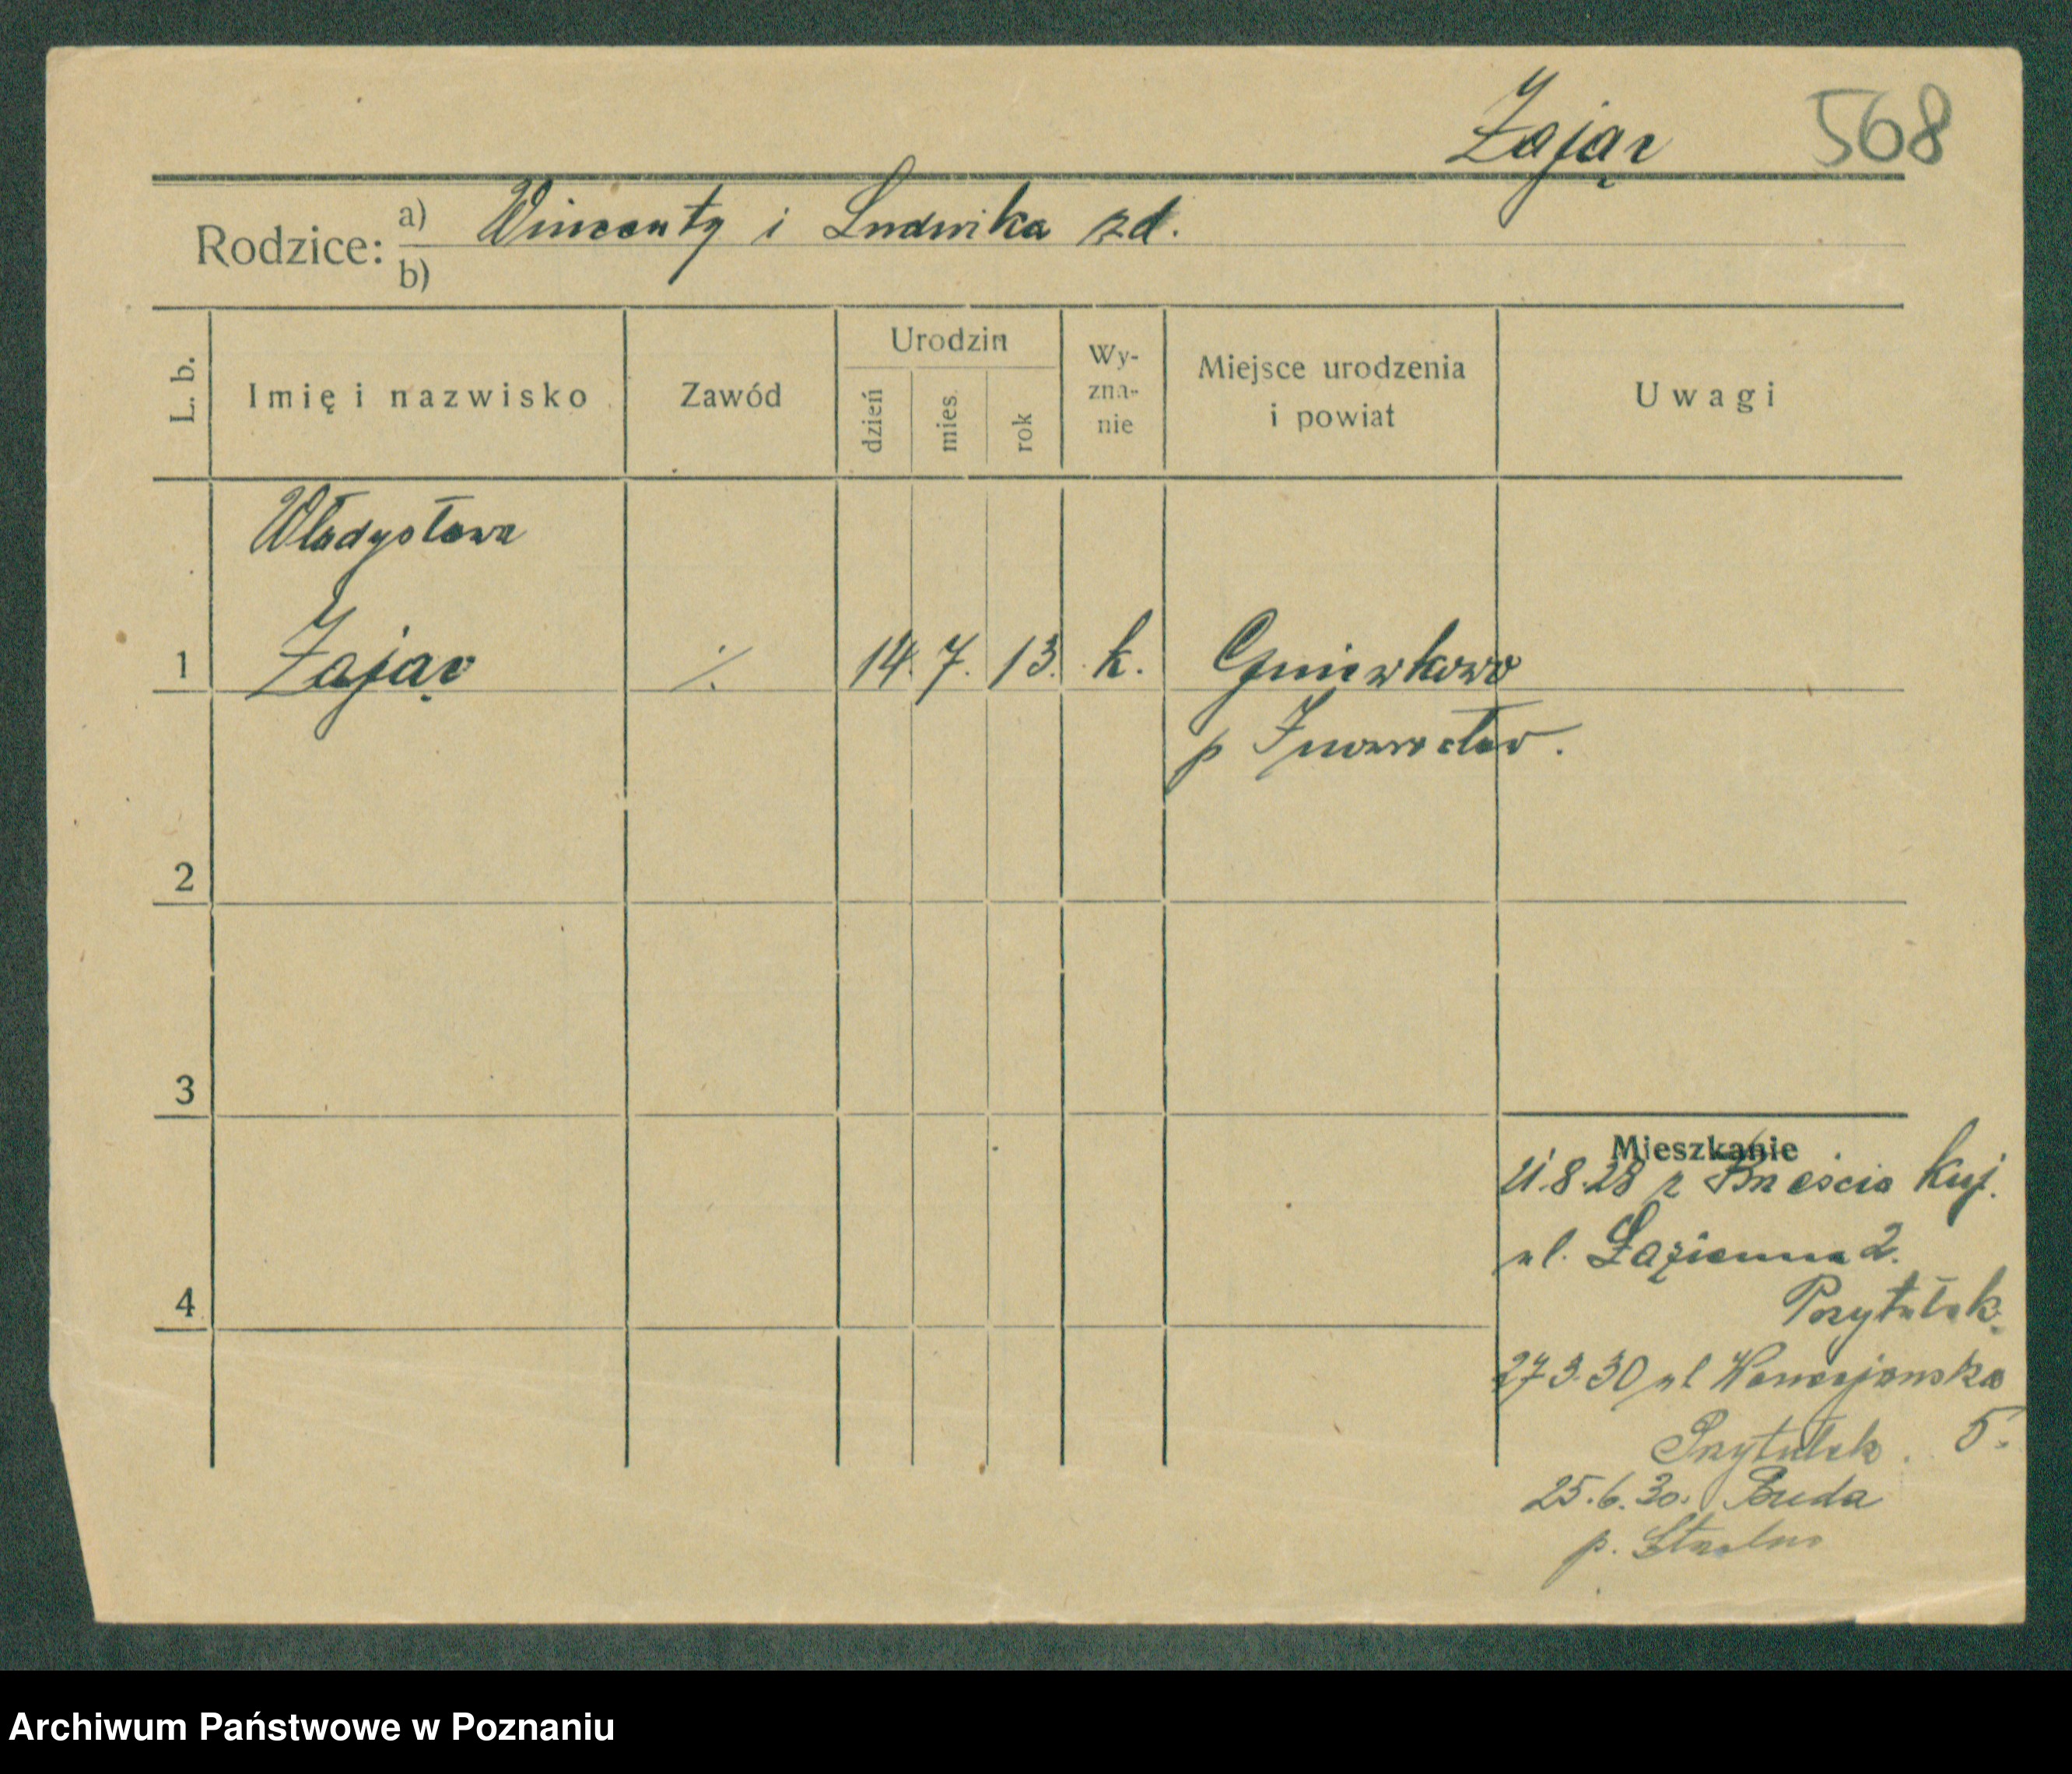 Zając 568
Rodzice: a) Wincenty i Ludwika zd.
b)
L. b. Imię i nazwisko Zawód Urodzin dzień mies. rok Wy-zna-nie Miejsce urodzenia i powiat Uwagi
Władysława
1 Zając ./. 14. 7. 13. k. Gniewkowo
p Inowrocław.
2
3
Mieszkanie
8.28 z Brześcia Kuj.
ul. Łazienna 2.
4 Przytułek.
27 3. 30 ul
Przytułek. 5.
25.6.30. Buda
p. Strzelno
Archiwum Państwowe w Poznaniu